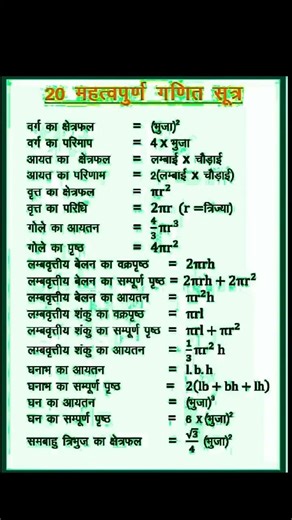 20 महत्वपुर्ण गणित सूत्र
वर्ग का क्षेत्रफल = (भुजा)²
वर्ग का परिमाप = 4 x भुजा
आयत का क्षेत्रफल = लम्बाई x चौड़ाई
आयत का परिणाम = 2(लम्बाई x चौड़ाई)
वृत्त का क्षेत्रफल = πr²
वृत्त का परिधि = 2πr (r =त्रिज्या)
गोले का आयतन = 4/3 πr³
गोले का पृष्ठ = 4πr²
लम्बवृत्तीय बेलन का वक्रपृष्ठ = 2πrh
लम्बवृत्तीय बेलन का सम्पूर्ण पृष्ठ = 2πrh + 2πr²
लम्बवृत्तीय बेलन का आयतन = πr²h
लम्बवृत्तीय शंकु का वक्रपृष्ठ = πrl
लम्बवृत्तीय शंकु का सम्पूर्ण पृष्ठ = πrl + πr²
लम्बवृत्तीय शंकु का आयतन = 1/3 πr² h
घनाभ का आयतन = l.b.h
घनाभ का सम्पूर्ण पृष्ठ = 2(lb + bh + lh)
घन का आयतन = (भुजा)³
घन का सम्पूर्ण पृष्ठ = 6 x (भुजा)²
समबाहु त्रिभुज का क्षेत्रफल = √3/4 (भुजा)²